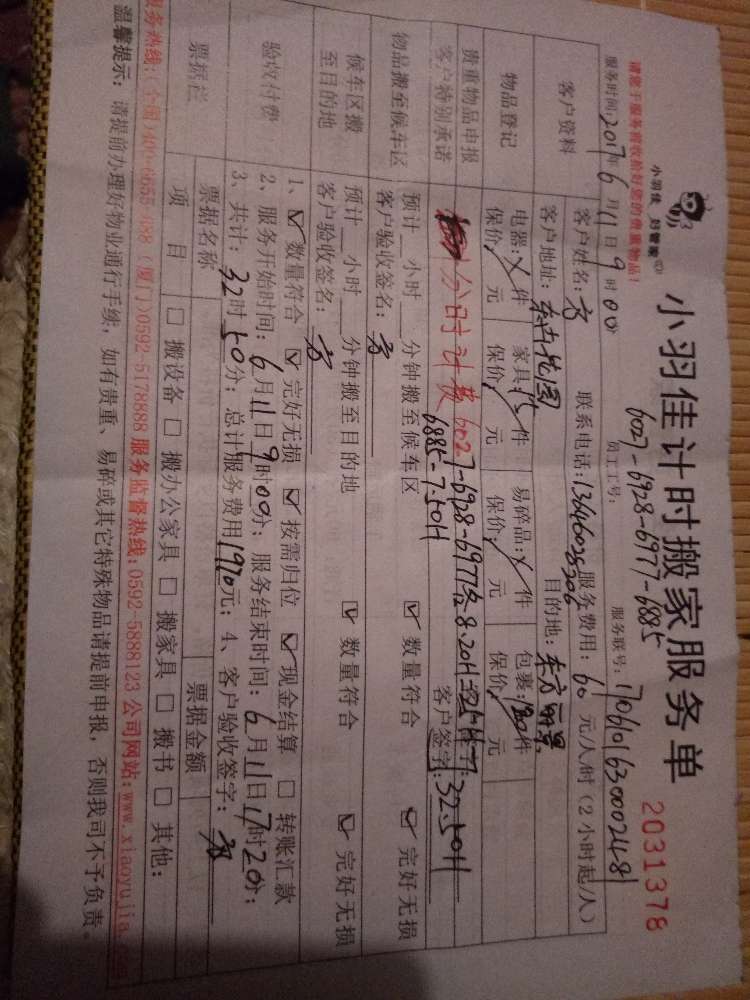 小羽佳 好管家
小羽佳计时搬家服务单
2031378
请您于服务前收拾好您的贵重物品!
员工工号: 6027-6928-6977-6885
服务联号: 17061016300002481
服务时间: 2017年6月11日9时00
服务费用: 60元/人/时(2小时起/人)
客户资料
客户姓名: 方
联系电话: 13646025306
客户地址: 东方花园
目的地: 东方丽景
物品登记
电器: 件 家具: 件 易碎品: 件 包裹: 件
保价 元 保价 元 保价 元 保价 元
贵重物品申报
客户特别承诺
分时计费 6027-6928-6977
6885-7.50H
客户签字: 32.50H
物品搬至候车区
预计 小时 分钟搬至候车区 数量符合 完好无损
客户验收签名: 方
候车区搬
至目的地
预计 小时 分钟搬至目的地 数量符合 完好无损
客户验收签名: 方
验收付费
1、 数量符合 完好无损 按需归位 现金结算 转账汇款
2、服务开始时间: 6月11日9时00分; 服务结束时间: 6月11日17时20分;
3、共计: 32时50分; 总计服务费用1970元; 4、客户验收签字: 方
票据栏
票据名称 票据金额
项目 搬设备 搬办公家具 搬家具 搬书 其他:
服务热线: (厦门)0592-5178888 服务监督热线: 0592-5888123 公司网站: www.xiaoyujia.
温馨提示: 请提前办理好物业通行手续, 如有贵重、易碎或其它特殊物品请提前申报, 否则我司不予负责。